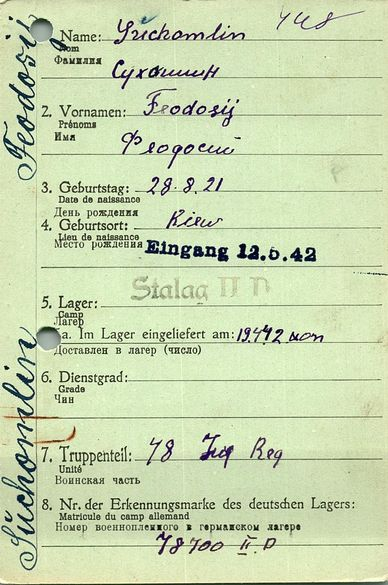 448
Name: Suchomlin
Nom
Фамилия
Сухомлин
2. Vornamen: Feodosij
Prénoms
Имя
Феодосий
3. Geburtstag: 28.8.21
Date de naissance
День рождения
4. Geburtsort: Kiew
Lieu de naissance
Место рождения
Eingang 12.5.42
Stalag II D
5. Lager:
Camp
Лагерь
a. Im Lager eingeliefert am: 19.4.42
Доставлен в лагерь (число)
6. Dienstgrad:
Grade
Чин
7. Truppenteil: 48 Inf Reg
Unité
Воинская часть
8. Nr. der Erkennungsmarke des deutschen Lagers:
Matricule du camp allemand
Номер военнопленного в германском лагере
78700 II. D
Suchomlin Feodosij